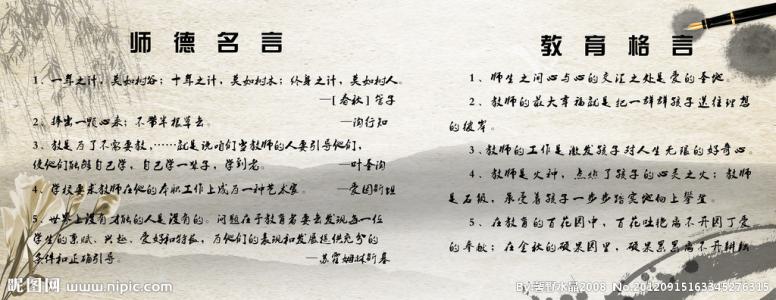 师德名言
1、一年之计，莫如树谷；十年之计，莫如树木；终身之计，莫如树人。
—[春秋]管子
2、捧出一颗心来；不带半根草去。 —陶行知
3、教是为了不需要教,……就是说咱们当教师的人要引导他们，
使他们能够自己学，自己学一辈子，学到老。 —叶圣陶
4、学校要求教师在他的本职工作上成为一种艺术家。 —爱因斯坦
5、世界上没有才能的人是没有的。问题在于教育者要去发现每一位
学生的禀赋、兴趣、爱好和特长，为他们的表现和发展提供充分的
条件和正确引导。 —苏霍姆林斯基
教育格言
1、师生之间心与心的交汇之处是爱的圣地。
2、教师的最大幸福就是把一群群孩子送往理想
的彼岸。
3、教师的工作是激发孩子对人生无限的好奇心。
4、教师是火种，点燃了孩子的心灵之火；教师
是石级，承受着孩子一步步踏实地向上攀登。
5、在教育的百花园中，百花吐艳离不开园丁爱
的奉献；在金秋的硕果园里，硕果累累离不开耕耘
昵图网 www.nipic.com
水晶2008 No.20120915163345276315